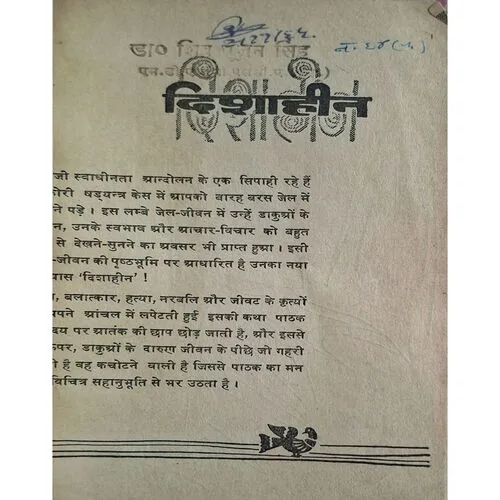 डा० शिव पूजन सिंह
दिशाहीन
जी स्वाधीनता आन्दोलन के एक सिपाही रहे हैं
षड्यन्त्र केस में आपको बारह बरस जेल में
ने पड़े । इस लम्बे जेल-जीवन में उन्हें डाकुओं के
न, उनके स्वभाव और आचार-विचार को बहुत
से देखने-सुनने का अवसर भी प्राप्त हुआ । इसी
-जीवन की पृष्ठभूमि पर आधारित है उनका नया
यास 'दिशाहीन' !
, बलात्कार, हत्या, नरबलि और जीवट के कृत्यों
पने आंचल में लपेटती हुई इसकी कथा पाठक
दय पर आतंक की छाप छोड़ जाती है, और इससे
पर, डाकुओं के दारुण जीवन के पीछे जो गहरी
है वह कचोटने वाली है जिससे पाठक का मन
विचित्र सहानुभूति से भर उठता है ।